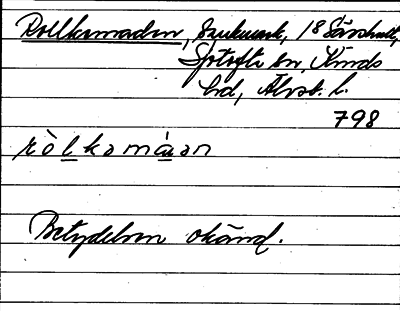 Rollkamaden, bruksmark, 18 Särshult,
Sjötofta sn, Kinds
hd, Älvsb. l.
798
ròlkamàan
Betydelsen okänd.